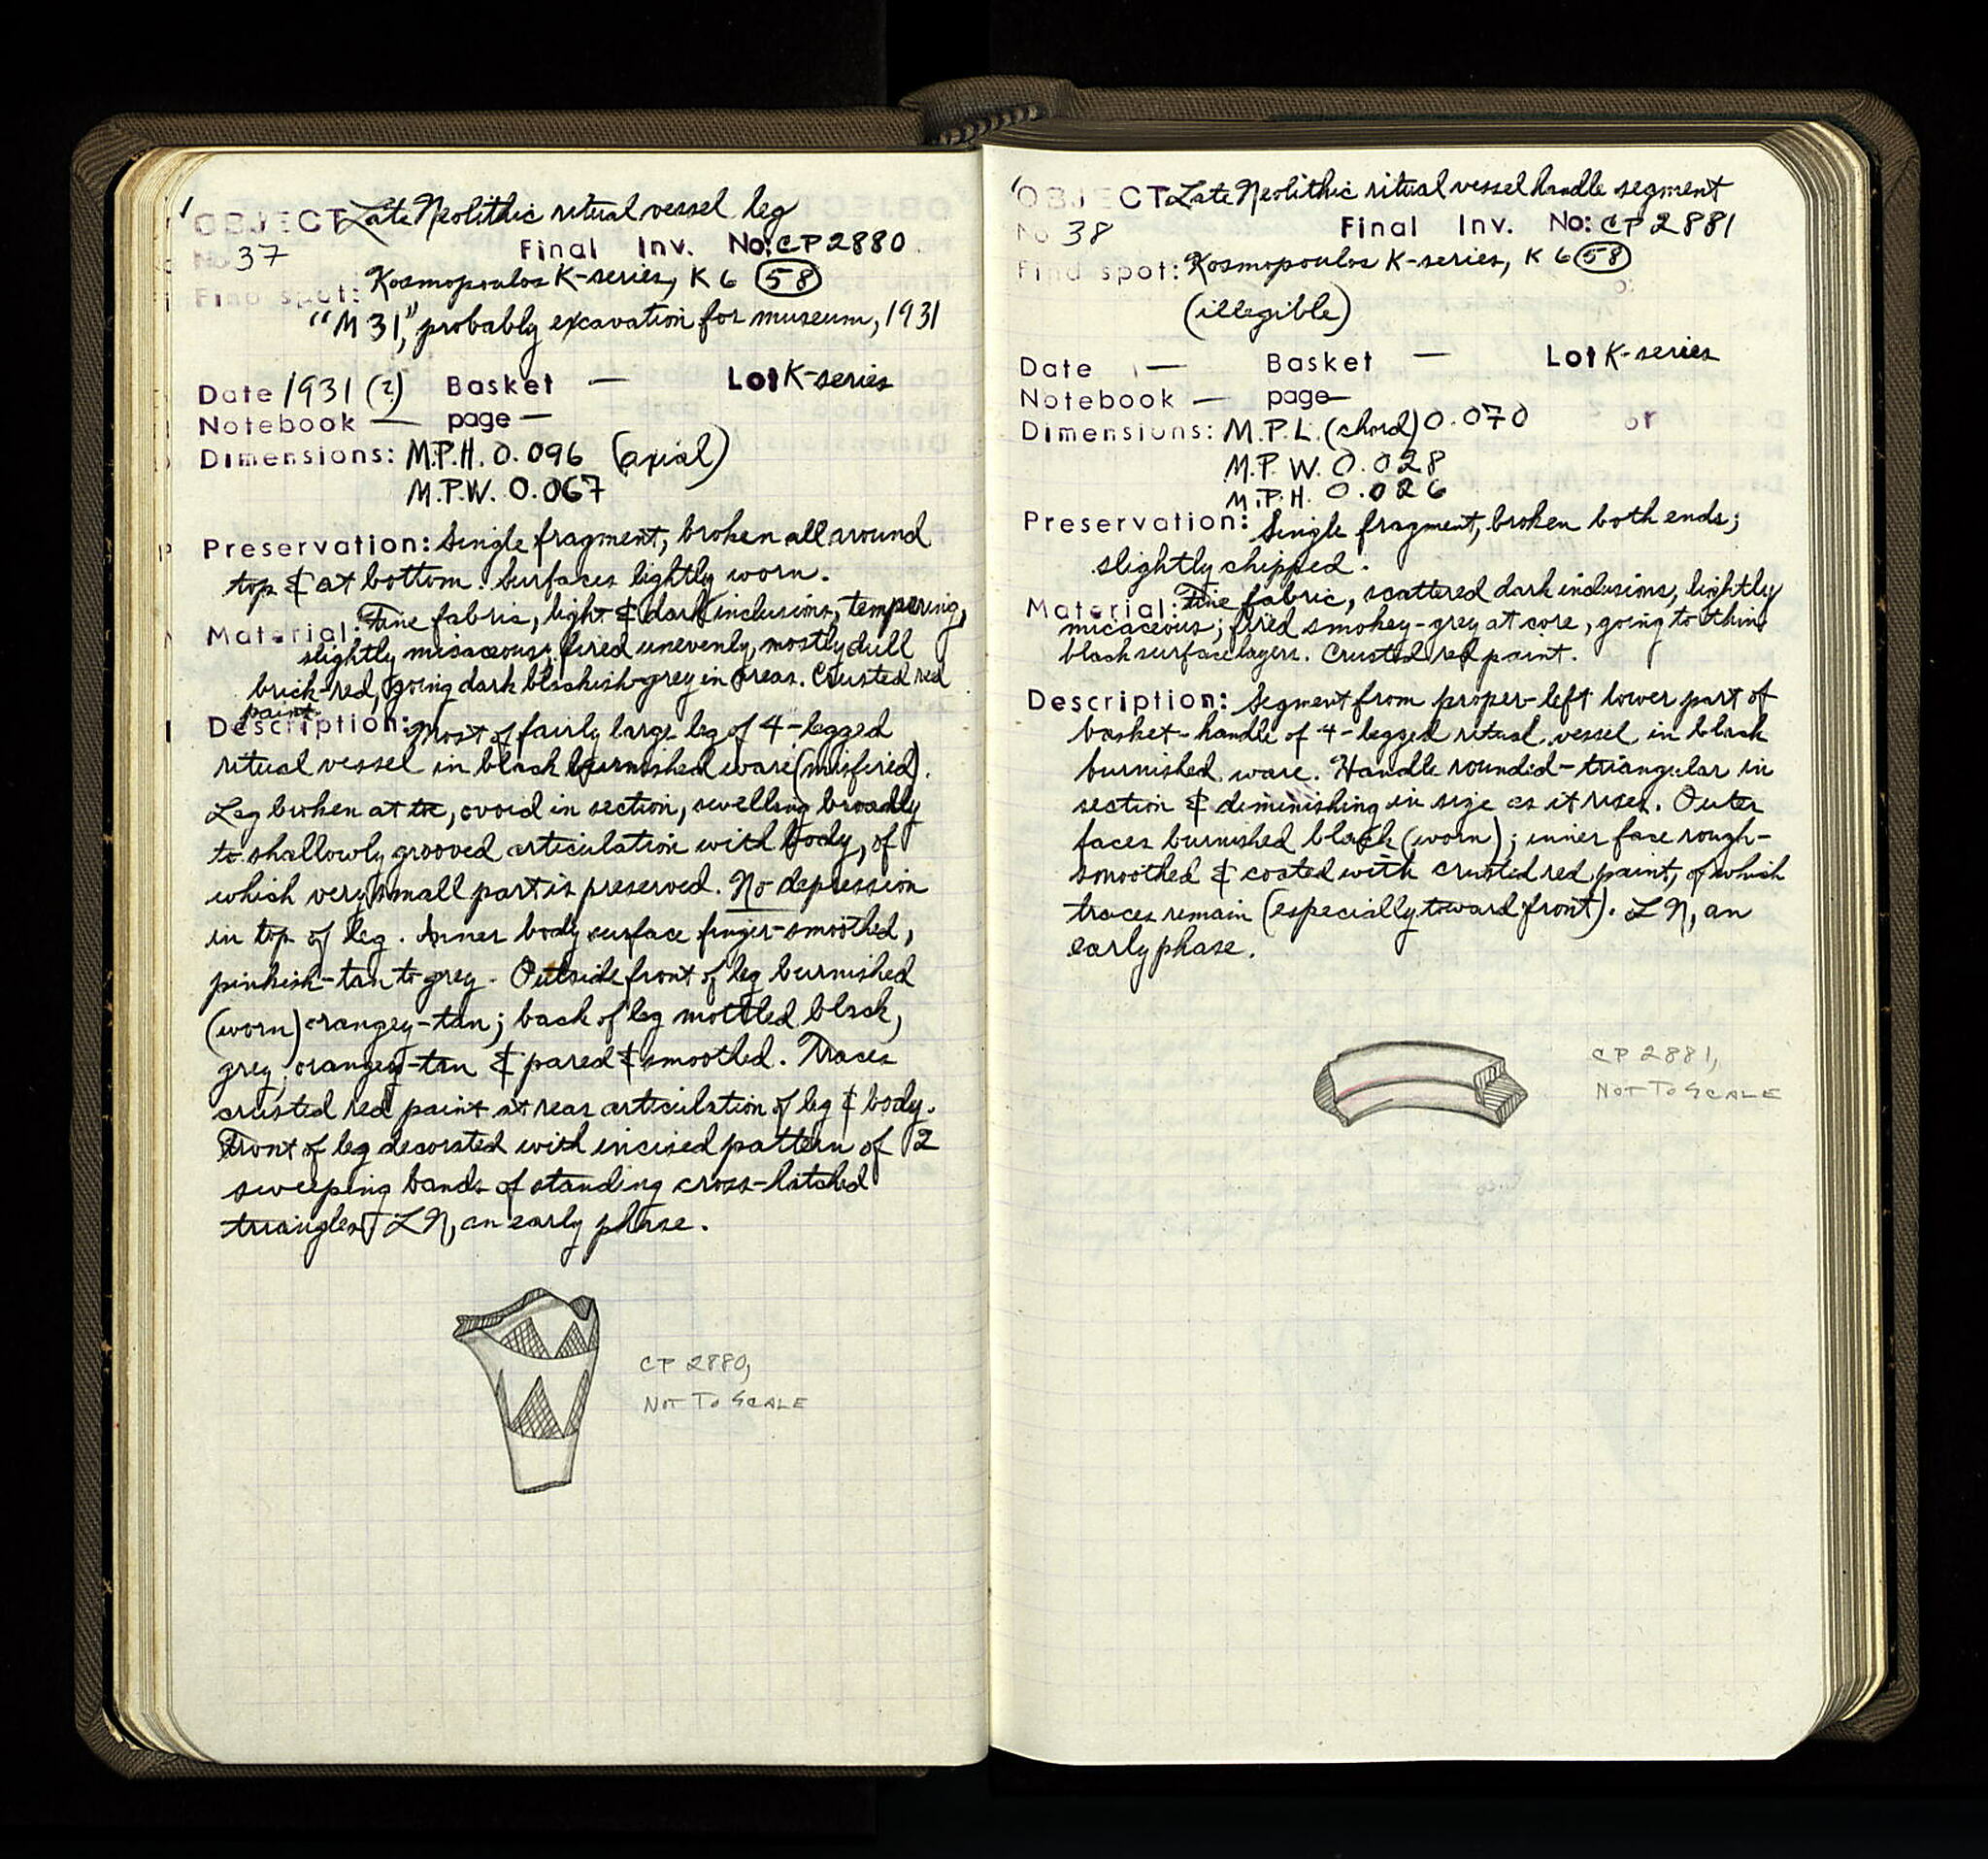 OBJECT Late Neolithic ritual vessel leg
No 37 Final Inv. No: CP 2880.
Find spot: Kosmopoulos K-series, K 6 (58)
"M 31", probably excavation for museum, 1931
Date 1931 (?) Basket — Lot K-series
Notebook — page —
Dimensions: M.P.H. 0.096 (axial)
M.P.W. 0.067
Preservation: Single fragment, broken all around
top & at bottom. Surfaces lightly worn.
Material: Fine fabric, light & dark inclusions, tempering,
slightly micaceous; fired unevenly, mostly dull
brick-red, going dark blackish-grey in areas. Crusted red
paint.
Description: Most of fairly large leg of 4-legged
ritual vessel in black burnished ware (misfired).
Leg broken at toe, ovoid in section, swelling broadly
to shallowly grooved articulation with body, of
which very small part is preserved. No depression
in top of leg. Inner body surface finger-smoothed,
pinkish-tan to grey. Outside front of leg burnished
(worn) orangey-tan; back of leg mottled black,
grey, orangey-tan & pared & smoothed. Traces
crusted red paint at rear articulation of leg & body.
Front of leg decorated with incised pattern of 2
sweeping bands of standing cross-hatched
triangles. LN, an early phase.
CP 2880,
NOT TO SCALE
OBJECT Late Neolithic ritual vessel handle segment
No 38 Final Inv. No: CP 2881
Find spot: Kosmopoulos K-series, K 6 (58)
(illegible)
Date — Basket — Lot K-series
Notebook — page —
Dimensions: M.P.L. (chord) 0.070
M.P.W. 0.028
M.P.H. 0.026
Preservation: Single fragment, broken both ends;
slightly chipped.
Material: Fine fabric, scattered dark inclusions, lightly
micaceous; fired smokey-grey at core, going to thin
black surface layers. Crusted red paint.
Description: Segment from proper-left lower part of
basket-handle of 4-legged ritual vessel in black
burnished ware. Handle rounded-triangular in
section & diminishing in size as it rises. Outer
faces burnished black (worn); inner face rough-
smoothed & coated with crusted red paint, of which
traces remain (especially toward front). LN, an
early phase.
CP 2881,
NOT TO SCALE